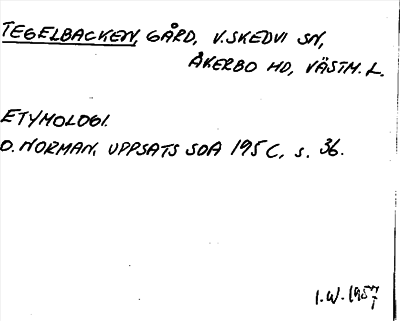 TEGELBACKEN, GÅRD, V. SKEDVI SN,
ÅKERBO HD, VÄSTM. L.
ETYMOLOGI.
O. NORMAN, UPPSATS SOA 195 C, s. 36.
I. W. 1957